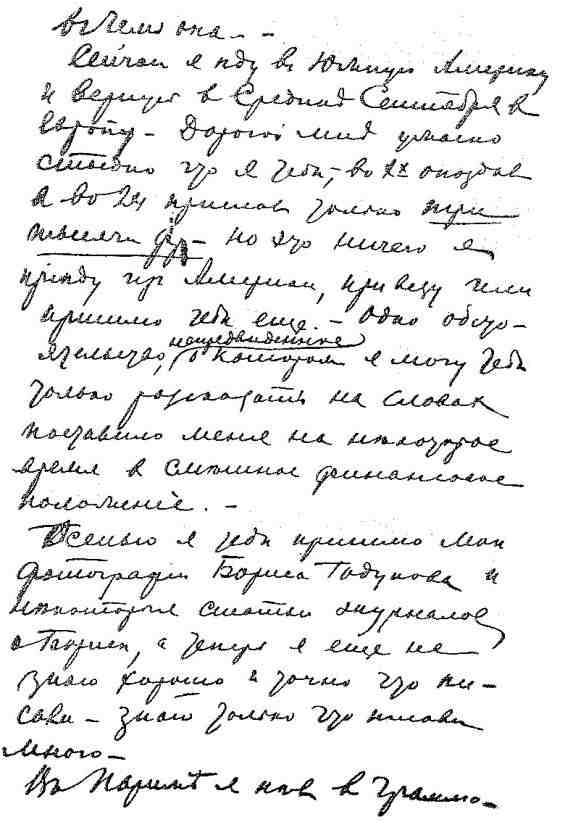 въ чемъ она. -
Сейчас я иду в Южную Америку
и вернусь в Средине Сентября в
Европу - Дорогой мой ужасно
стыдно что я тебе, во 1х опоздал
а во 2х прислал только три
тысячи фр - но это ничего я
приеду из Америки, привезу или
пришлю тебе еще. - Одно обсто-
ятельство, непредвиденное о котором я могу тебе
только рассказать на словах
поставило меня на некоторое
время в смешное финансовое
положенiе. -
Осенью я тебе пришлю мои
фотографiи Бориса Годунова и
некоторые статьи журналов
о Борисе, а теперь я еще не
знаю хорошо и точно что пи-
сали - знаю только что писали
много -
Въ Париже я пел в Граммо-